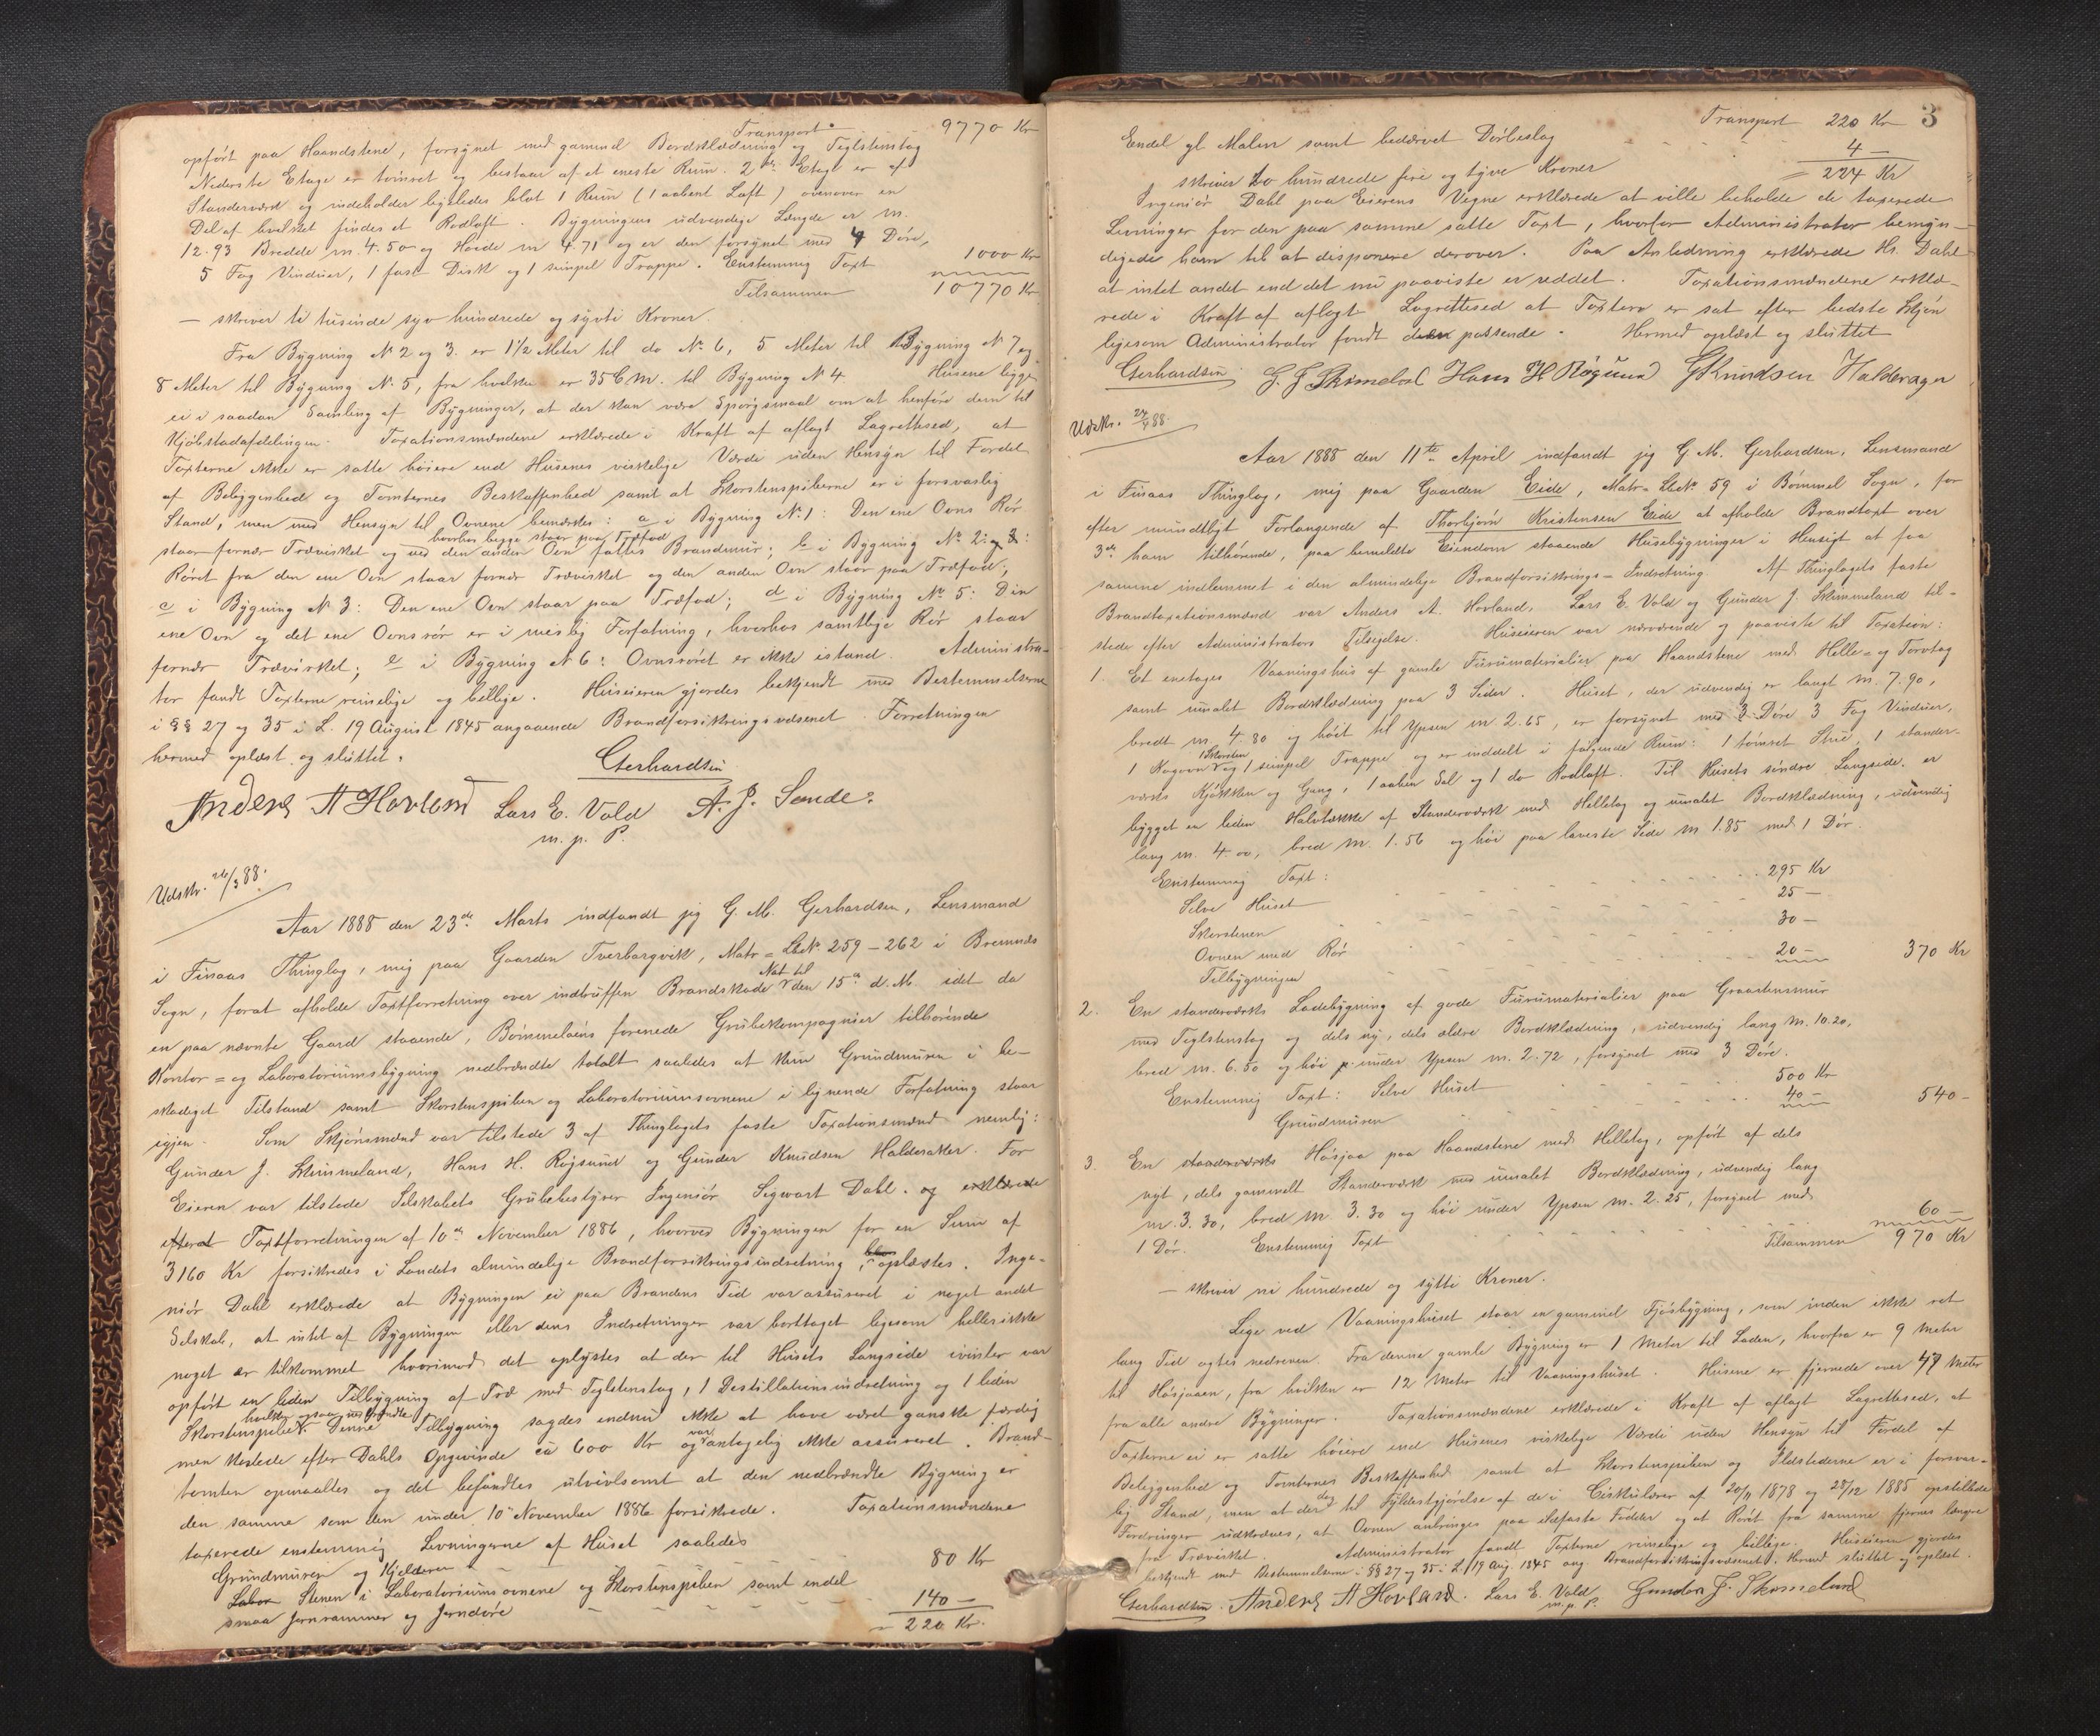 Transport 9770 Kr
opført paa Haandstene, forsynet med gammel Bordklædning og Teglstenstag
Nederste Etage er tømret og bestaar af et eneste Rum. 2den Etage er af
Standerværk og indeholder ligeledes blot 1 Rum (1 aabent Loft) ovenover en
Del af hvilket findes et Rodloft. Bygningens udvendige Længde er m.
12.93 Bredde m. 4.50 og Høide m 4.71 og er den forsynet med 4 Døre,
5 Fag Vinduer, 1 fast Disk og 1 simpel Trappe. Enstemmig Taxt 1000 Kr
Tilsammen 10770 Kr
— skriver ti tusinde syv hundrede og sytti Kroner.
Fra Bygning No 2 og 3 er 1 1/2 Meter til do No 6, 5 Meter til Bygning No 7 og
8 Meter til Bygning No 5, fra hvilken er 35 m. til Bygning No 4 Husene ligge
ei i saadan Samling af Bygninger, at der kan være Spørgsmaal om at henføre dem til
Kjøbstadafdelingen. Taxationsmændene erklærede i Kraft af aflagt Lagrettesed, at
Taxterne ikke er satte høiere end Husenes virkelige Værdi uden Hensyn til Fordel
af Beliggenhed og Tomternes Beskaffenhed samt at Skorstenspiberne er i forsvarlig
Stand, men med Hensyn til Ovnene bemærkes: a i Bygning No 1: Den ene Ovns Rør
hvorhos begge staar paa Træfod
staar fornær Trævirket og ved den anden Ovn fattes Brandmur; b i Bygning No 2:
Røret fra den ene Ovn staar fornær Trævirket og den anden Ovn staar paa Træfod;
c i Bygning No 3: Den ene Ovn staar paa Træfod; d i Bygning No 5: Den
ene Ovn og det ene Ovnsrør er i mislig Forfatning, hvorhos samtlige Rør staar
fornær Trævirket; e i Bygning No 6: Ovnsrøret er ikke istand. Administra-
tor fandt Taxterne rimelige og billige. Huseieren gjordes bekjendt med Bestemmelserne
i §§ 27 og 35 i L. 19 August 1845 angaaende Brandforsikringsvæsenet. Forretningen
hermed oplæst og sluttet.
Gerhardsen
Anders A Hovland Lars E. Vold A. J. Sende.
m. p. P.
Udskr. 26/3 88.
Aar 1888 den 23de Marts indfandt jeg G. M. Gerhardsen, Lensmand
i Finaas Thinglag, mig paa Gaarden Tverborgvik, Matr = LNo. 259-262 i Bremnæs
Nat til
Sogn, forat afholde Taxtforretning over indtruffen Brandskade den 15de d. M. idet da
en paa nævnte Gaard staaende, Bømmeløens forenede Grubekompagnier tilhørende
Kontor= og Laboratoriumsbygning nedbrændte totalt saaledes at kun Grundmuren i be-
skadiget Tilstand samt Skorstenspiben og Laboratoriumsovnene i lignende Forfatning staar
igjen. Som Skjønsmænd var tilstede 3 af Thinglagets faste Taxationsmænd nemlig:
Gunder J. Skimmeland, Hans H. Røgsund og Gunder Knudsen Halderaker. For
Eieren var tilstede Selskabets Grubebestyrer Ingeniør Segwart Dahl. og erklærede
efterat Taxtforretningen af 10de November 1886, hvorved Bygningen for en Sum af
3160 Kr forsikredes i Landets almindelige Brandforsikringsindretning, oplæstes. Inge-
niør Dahl erklærede at Bygningen ei paa Brandens Tid var assureret i noget andet
Selskab, at intet af Bygningen eller dens Indretninger var borttaget ligesom heller ikke
noget er tilkommet hvorimod det oplystes at der til Husets Langside ivinter var
opført en liden Tilbygning af Træ med Teglstenstag, 1 Destillationsindretning og 1 liden
hvilke ogsaa nedbrændte
Skorstenspibe. Denne Tilbygning sagdes endnu ikke at have været ganske færdig
men kostede efter Dahls Opgivende ca 600 Kr og var antagelig ikke assureret. Brand-
tomten opmaaltes og det befandtes utvivlsomt at den nedbrændte Bygning er
den samme som den under 10de November 1886 forsikrede. Taxationsmændene
taxerede enstemmig Levningerne af Huset saaledes
Grundmuren og Kjelderen - - 80 Kr
Labor Stenen i Laboratoriumsovnene og Skorstenspiben samt endel
smaa Jernrammer og Jerndøre - - - 140 -
= 220 Kr.
3
Transport 220 Kr
Endel gl Malm samt bedærvet Dørbeslag - - - 4 -
= 224 Kr
skriver to hundrede fire og tyve Kroner
Ingeniør Dahl paa Eierens Vegne erklærede at ville beholde de taxerede
Levninger for den paa samme satte Taxt, hvorfor Administrator bemyn-
digede ham til at disponere derover. Paa Anledning erklærede Hr. Dahl
at intet andet end det nu paaviste er reddet. Taxationsmændene erklæ-
rede i Kraft af aflagt Lagrettesed at Taxten er sat efter bedste Skjøn
ligesom Administrator fandt den passende. Hermed oplæst og sluttet
Gerhardsen G. J. Skimeland Hans H Røgsund G Knudsen Halderager
Udskr. 24/4 88.
Aar 1888 den 11te April indfandt jeg G M. Gerhardsen, Lensmand
i Finaas Thinglag, mig paa Gaarden Eide, Matr= LNo. 59 i Bømmel Sogn, for
efter mundtligt Forlangende af Thorbjørn Kristensen Eide at afholde Brandtaxt over
3de ham tilhørende, paa bemeldte Eiendom staaende Husebygninger i Hensigt at faa
samme indlemmet i den almindelige Brandforsikrings=Indretning Af Thinglagets faste
Brandtaxationsmænd var Anders A. Hovland, Lars E. Vold og Gunder J. Skimmeland til-
stede efter Administrators Tilsigelse. Huseieren var nærværende og paaviste til Taxation:
1. Et enetages Vaaningshus af gamle Furumaterialier paa Haandstene med Helle= og Torvtag
samt umalet Bordklædning paa 3 Sider. Huset, der udvendig er langt m. 7.90,
bredt m. 4.80 og høit til Ypsen m 2.65, er forsynet med 3 Døre 3 Fag Vinduer,
1 Skorsten
1 Kogovn og 1 simpel Trappe og er inddelt i følgende Rum: 1 tømret Stue, 1 stander-
værks Kjøkken og Gang, 1 aaben Sal og 1 do Rodloft. Til Husets søndre Langside er
bygget en liden Halvtække af Standerværk med Helletag og umalet Bordklædning, udvendig
lang m. 4.00, bred m. 1.56 og høi paa laveste Side m 1.85 med 1 Dør.
Enstemmig Taxt:
Selve Huset - - - 295 Kr
Skorstenen - - - 25 -
Ovnen med Rør - - - 30 -
Tilbygningen - - - 20 - 370 Kr
2. En standerværks Ladebygning af gode Furumaterialier paa Graastensmur
med Teglstenstag og dels ny, dels ældre Bordklædning, udvendig lang m. 10.20,
bred m. 6.50 og høi under Ypsen m. 2.72, forsynet med 3 Døre.
Enstemmig Taxt: Selve Huset - - - 500 Kr
Grundmuren - - - 40 - 540 -
3. En standerværks Høsjaa paa Haandstene med Helletag, opført af dels
nyt, dels gammelt Standerværk med umalet Bordklædning, udvendig lang
m. 3.30, bred m. 3.30 og høi under Ypsen m. 2.25, forsynet med
1 Dør. Enstemmig Taxt - - - 60 -
Tilsammen 970 Kr
— skriver ni hundrede og sytti Kroner.
Lige ved Vaaningshuset staar en gammel Fjøsbygning, som inden ikke ret
lang Tid agtes nedreven. Fra denne gamle Bygning er 1 Meter til Laden, hvorfra er 9 Meter
til Høsjaaen, fra hvilken er 12 Meter til Vaaningshuset. Husene er fjernede over 47 Meter
fra alle andre Bygninger. Taxationsmændene erklærede i Kraft af aflagt Lagrettesed, at
Taxterne ei er satte høiere end Husenes virkelige Værdi uden Hensyn til Fordel af
Beliggenhed og Tomternes Beskaffenhed samt at Skorstenspiben og Ildstederne er i forsvar-
lig Stand, men at der til Fyldestgjørelse af de i Cirkulærer af 20/11 1878 og 28/12 1885 opstillede
Fordringer udkræves, at Ovnen anbringes paa ildfaste Fødder og at Røret fra samme fjernes længre
fra Trævirket. Administrator fandt Taxterne rimelige og billige. Huseieren gjordes
bekjendt med Bestemmelserne i §§ 27 og 35 i L. 19 Aug. 1845 ang. Brandforsikringsvæsenet. Hermed sluttet og oplæst.
Gerhardsen. Anders A Hovland. Lars E. Vold Gunder J. Skimeland
m. p. P.